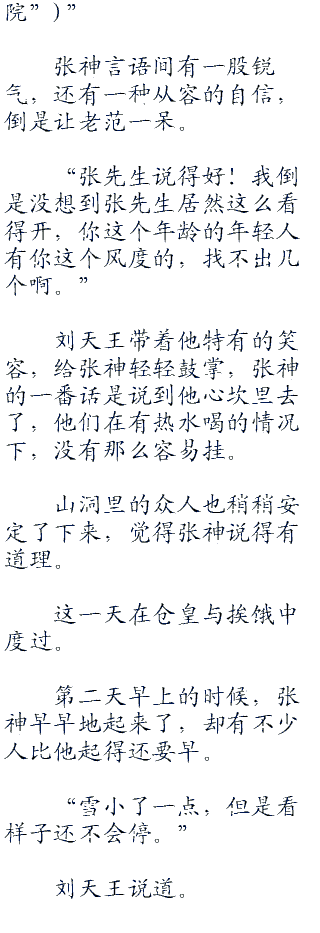 院”)”
张神言语间有一股锐
气，还有一种从容的自信，
倒是让老范一呆。
“张先生说得好！我倒
是没想到张先生居然这么看
得开，你这个年龄的年轻人
有你这个风度的，找不出几
个啊。”
刘天王带着他特有的笑
容，给张神轻轻鼓掌，张神
的一番话是说到他心坎里去
了，他们在有热水喝的情况
下，没有那么容易挂。
山洞里的众人也稍稍安
定了下来，觉得张神说得有
道理。
这一天在仓皇与挨饿中
度过。
第二天早上的时候，张
神早早地起来了，却有不少
人比他起得还要早。
“雪小了一点，但是看
样子还不会停。”
刘天王说道。